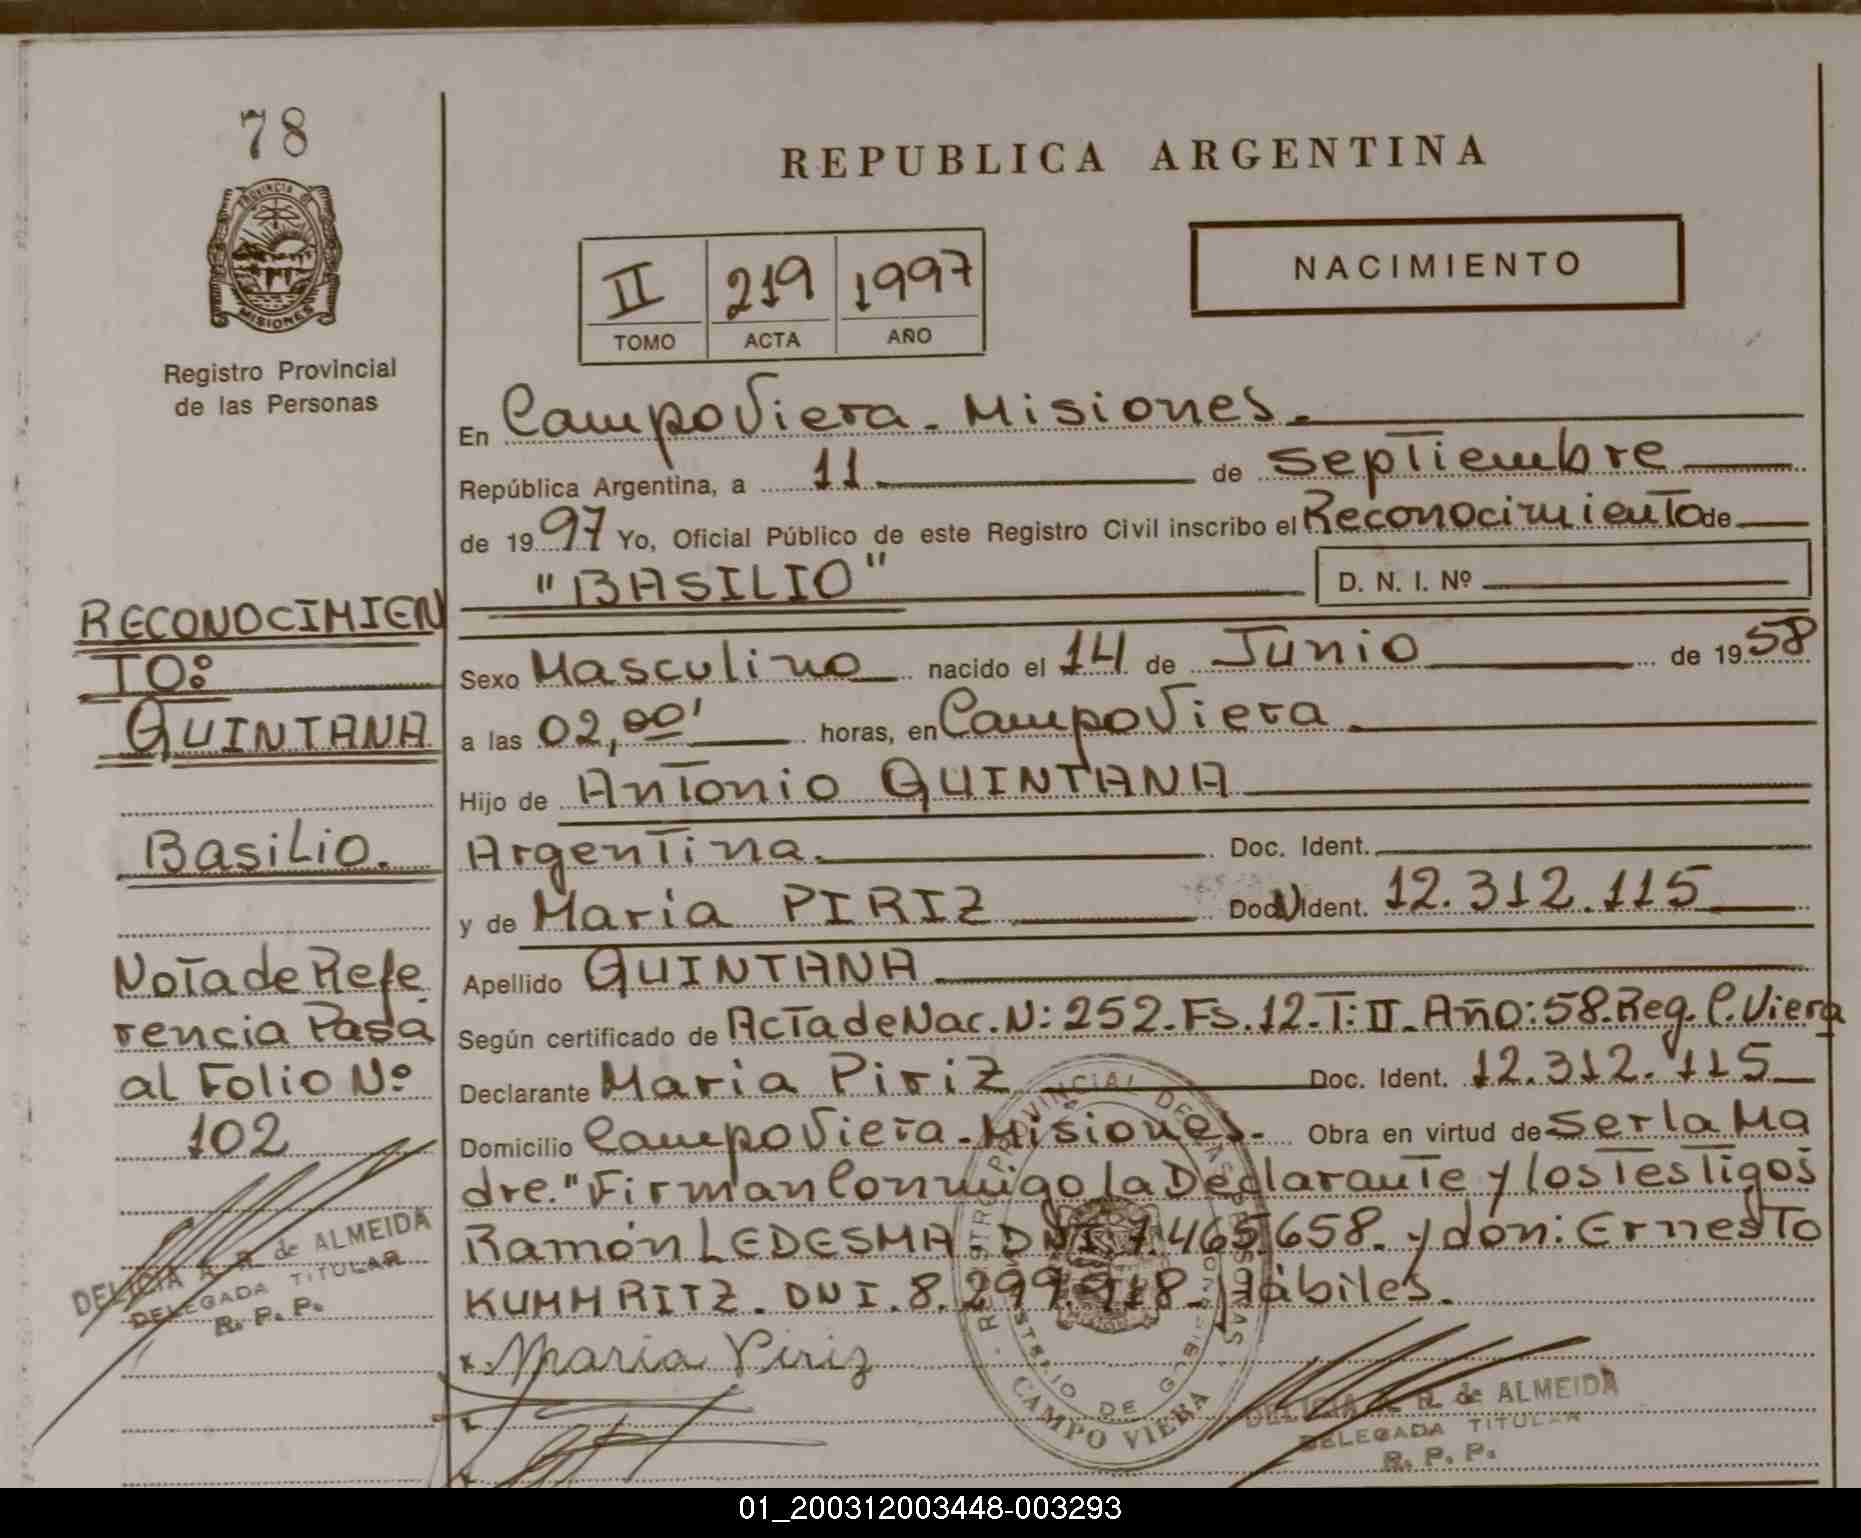 78
PROVINCIA D
MISIONES
Registro Provincial
de las Personas
REPUBLICA ARGENTINA
II 219 1997
TOMO ACTA AÑO
NACIMIENTO
En Campo Viera - Misiones.
República Argentina, a 11 de Septiembre
de 1997 Yo, Oficial Público de este Registro Civil inscribo el Reconocimiento de
"BASILIO" D. N. I. Nº
RECONOCIMIEN
TO:
QUINTANA
Basilio.
Nota de Refe
rencia Pasa
al Folio Nº
102
DELICIA A. R. de ALMEIDA
DELEGADA TITULAR
R. P. P.
Sexo Masculino nacido el 14 de Junio de 1958
a las 02,00' horas, en Campo Viera
Hijo de Antonio QUINTANA
Argentina. Doc. Ident.
y de Maria PIRIZ Doc. Ident. 12.312.115
Apellido QUINTANA
Según certificado de Acta de Nac. N: 252. Fs. 12. T: II. Año: 58. Reg. C. Viera
Declarante Maria Piriz Doc. Ident. 12.312.115
Domicilio Campo Viera - Misiones. Obra en virtud de Ser la Ma
dre." Firman Conmigo la Declarante y los Testigos
Ramón LEDESMA DNI 7.465.658. y don: Ernesto
KUMMRITZ. DNI. 8.299.918. Hábiles.
x. Maria Piriz
REGISTRO PROVINCIAL DE LAS PERSONAS
MINISTERIO DE GOBIERNO
CAMPO VIERA
DELICIA A. R. de ALMEIDA
DELEGADA TITULAR
R. P. P.
01_200312003448-003293